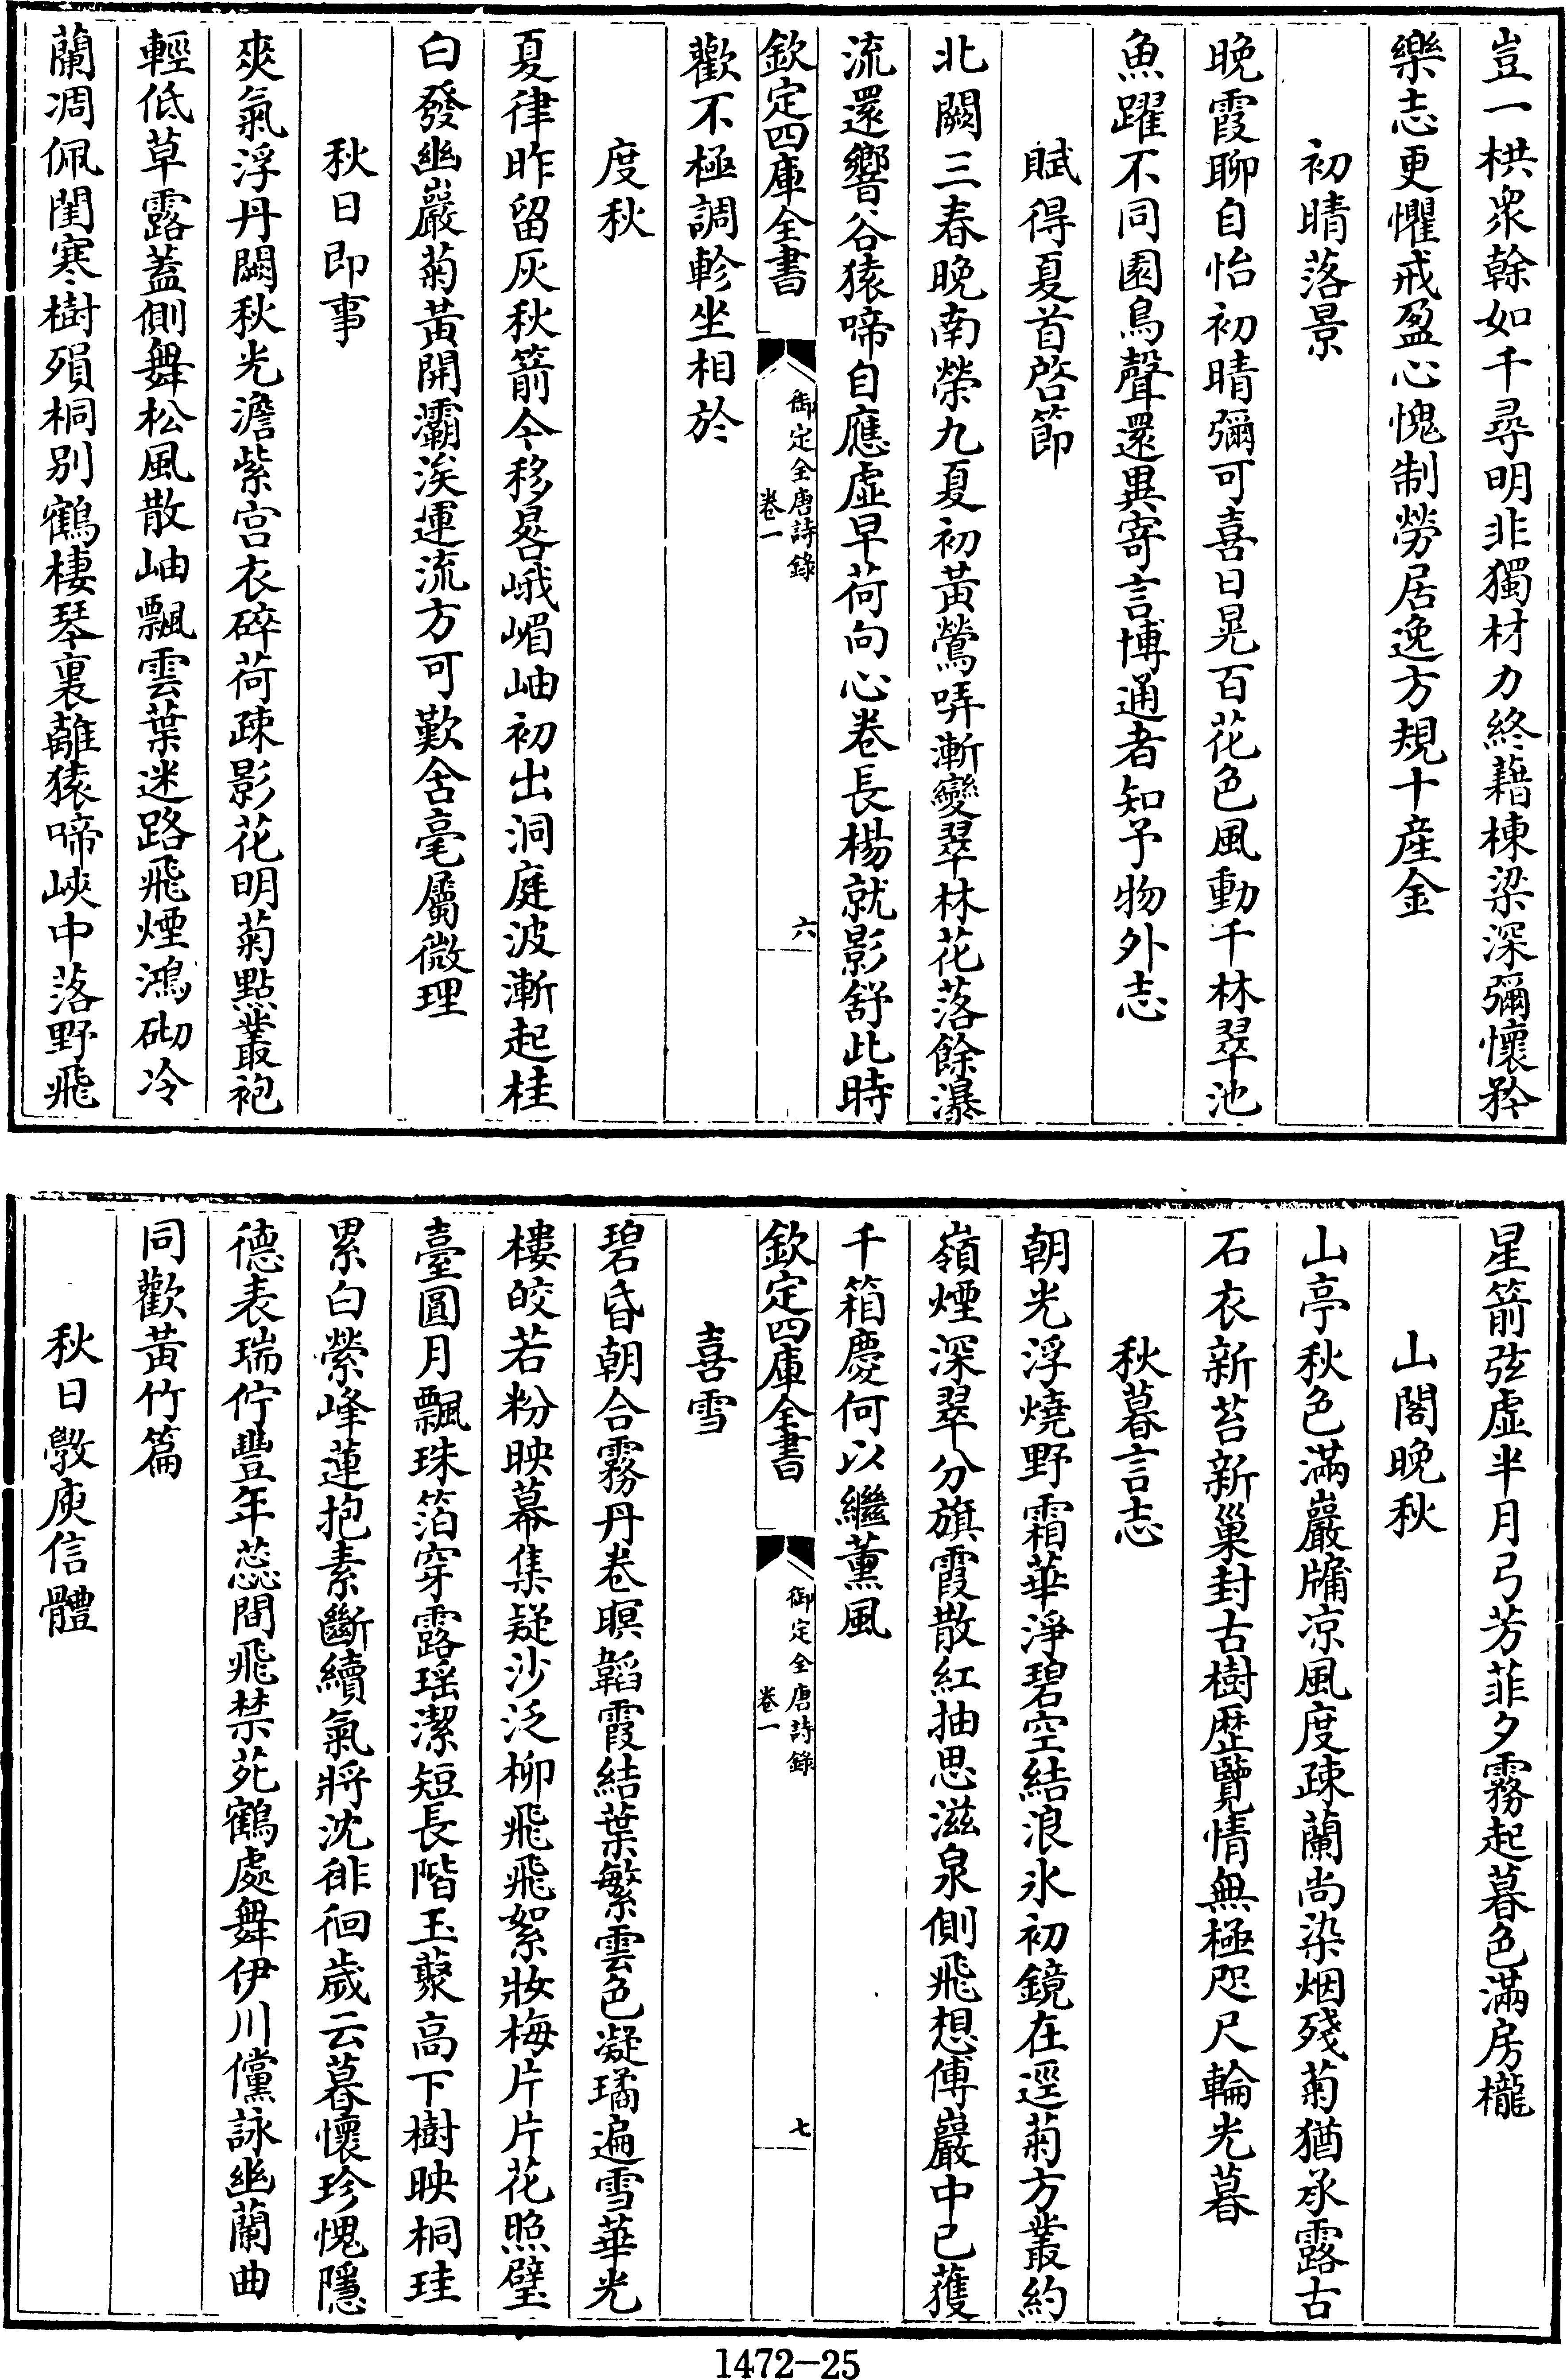 豈一栱衆榦如千尋明非獨材力終藉棟梁深彌懷矜
樂志更懼戒盈心愧制勞居逸方規十産金
初晴落景
晚霞聊自怡初晴彌可喜日晃百花色風動千林翠池
魚躍不同園鳥聲還異寄言博通者知予物外志
賦得夏首啓節
北闕三春晚南榮九夏初黃鶯哢漸變翠林花落餘瀑
流還響谷猿啼自應虛早荷向心卷長楊就影舒此時
欽定四庫全書
御定全唐詩錄
卷一
六
歡不極調軫坐相於
度秋
夏律昨留灰秋箭今移晷峨嵋岫初出洞庭波漸起桂
白發幽巖菊黃開灞涘運流方可歎含毫屬微理
秋日即事
爽氣浮丹闕秋光澹紫宮衣碎荷疎影花明菊點叢袍
輕低草露蓋側舞松風散岫飄雲葉迷路飛煙鴻砌冷
蘭凋佩閨寒樹殞桐別鶴棲琴裏離猿啼峽中落野飛
星箭弦虛半月弓芳菲夕霧起暮色滿房櫳
山閣晚秋
山亭秋色滿巖牖凉風度疎蘭尚染烟殘菊猶承露古
石衣新苔新巢封古樹歴覽情無極咫尺輪光暮
秋暮言志
朝光浮燒野霜華淨碧空結浪氷初鏡在逕菊方叢約
嶺煙深翠分旗霞散紅抽思滋泉側飛想傅巖中已獲
千箱慶何以繼薰風
欽定四庫全書
御定全唐詩錄
卷一
七
喜雪
碧昏朝合霧丹卷暝韜霞結葉繁雲色凝璚遍雪華光
樓皎若粉映幕集疑沙泛柳飛飛絮妝梅片片花照璧
臺圓月飄珠箔穿露瑶潔短長階玉藂高下樹映桐珪
累白縈峰蓮抱素斷續氣將沈徘徊歲云暮懷珍愧隱
德表瑞佇豐年蕊間飛禁苑鶴處舞伊川儻詠幽蘭曲
同歡黃竹篇
秋日斆庾信體
1472—25